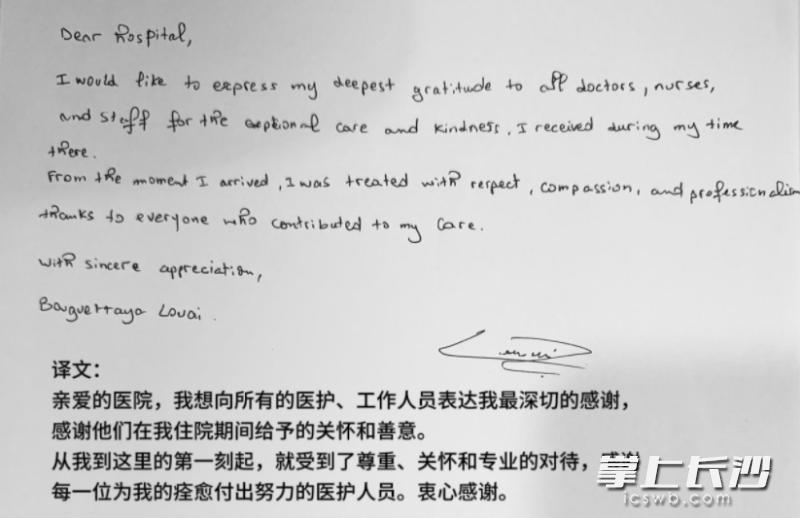 Dear Hospital,
I would like to express my deepest gratitude to all doctors, nurses,
and staff for the exptional care and kindness, I received during my time
there.
From the moment I arrived, I was treated with respect, compassion, and professionalism
thanks to everyone who contributed to my care.
with sincere appreciation,
Bouguettaya Louai.
译文：
亲爱的医院，我想向所有的医护、工作人员表达我最深切的感谢，
感谢他们在我住院期间给予的关怀和善意。
从我到这里的第一刻起，就受到了尊重、关怀和专业的对待，感谢
每一位为我的痊愈付出努力的医护人员。衷心感谢。
掌上长沙
icswb.com